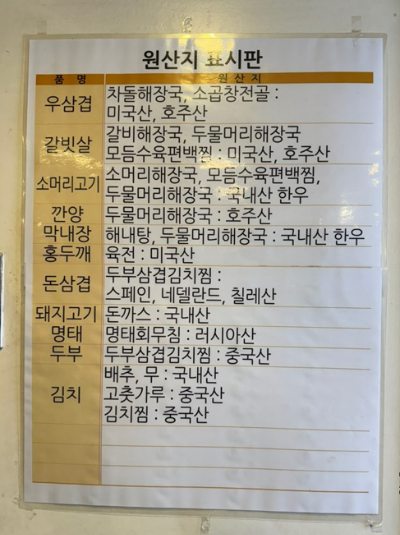 원산지 표시판
품 명 원 산 지
우삼겹 차돌해장국, 소곱창전골 :
미국산, 호주산
갈빗살 갈비해장국, 두물머리해장국
모듬수육편백찜 : 미국산, 호주산
소머리고기 소머리해장국, 모듬수육편백찜,
두물머리해장국 : 국내산 한우
깐양 두물머리해장국 : 호주산
막내장 해내탕, 두물머리해장국 : 국내산 한우
홍두깨 육전 : 미국산
돈삼겹 두부삼겹김치찜 :
스페인, 네델란드, 칠레산
돼지고기 돈까스 : 국내산
명태 명태회무침 : 러시아산
두부 두부삼겹김치찜 : 중국산
김치 배추, 무 : 국내산
고춧가루 : 중국산
김치찜 : 중국산